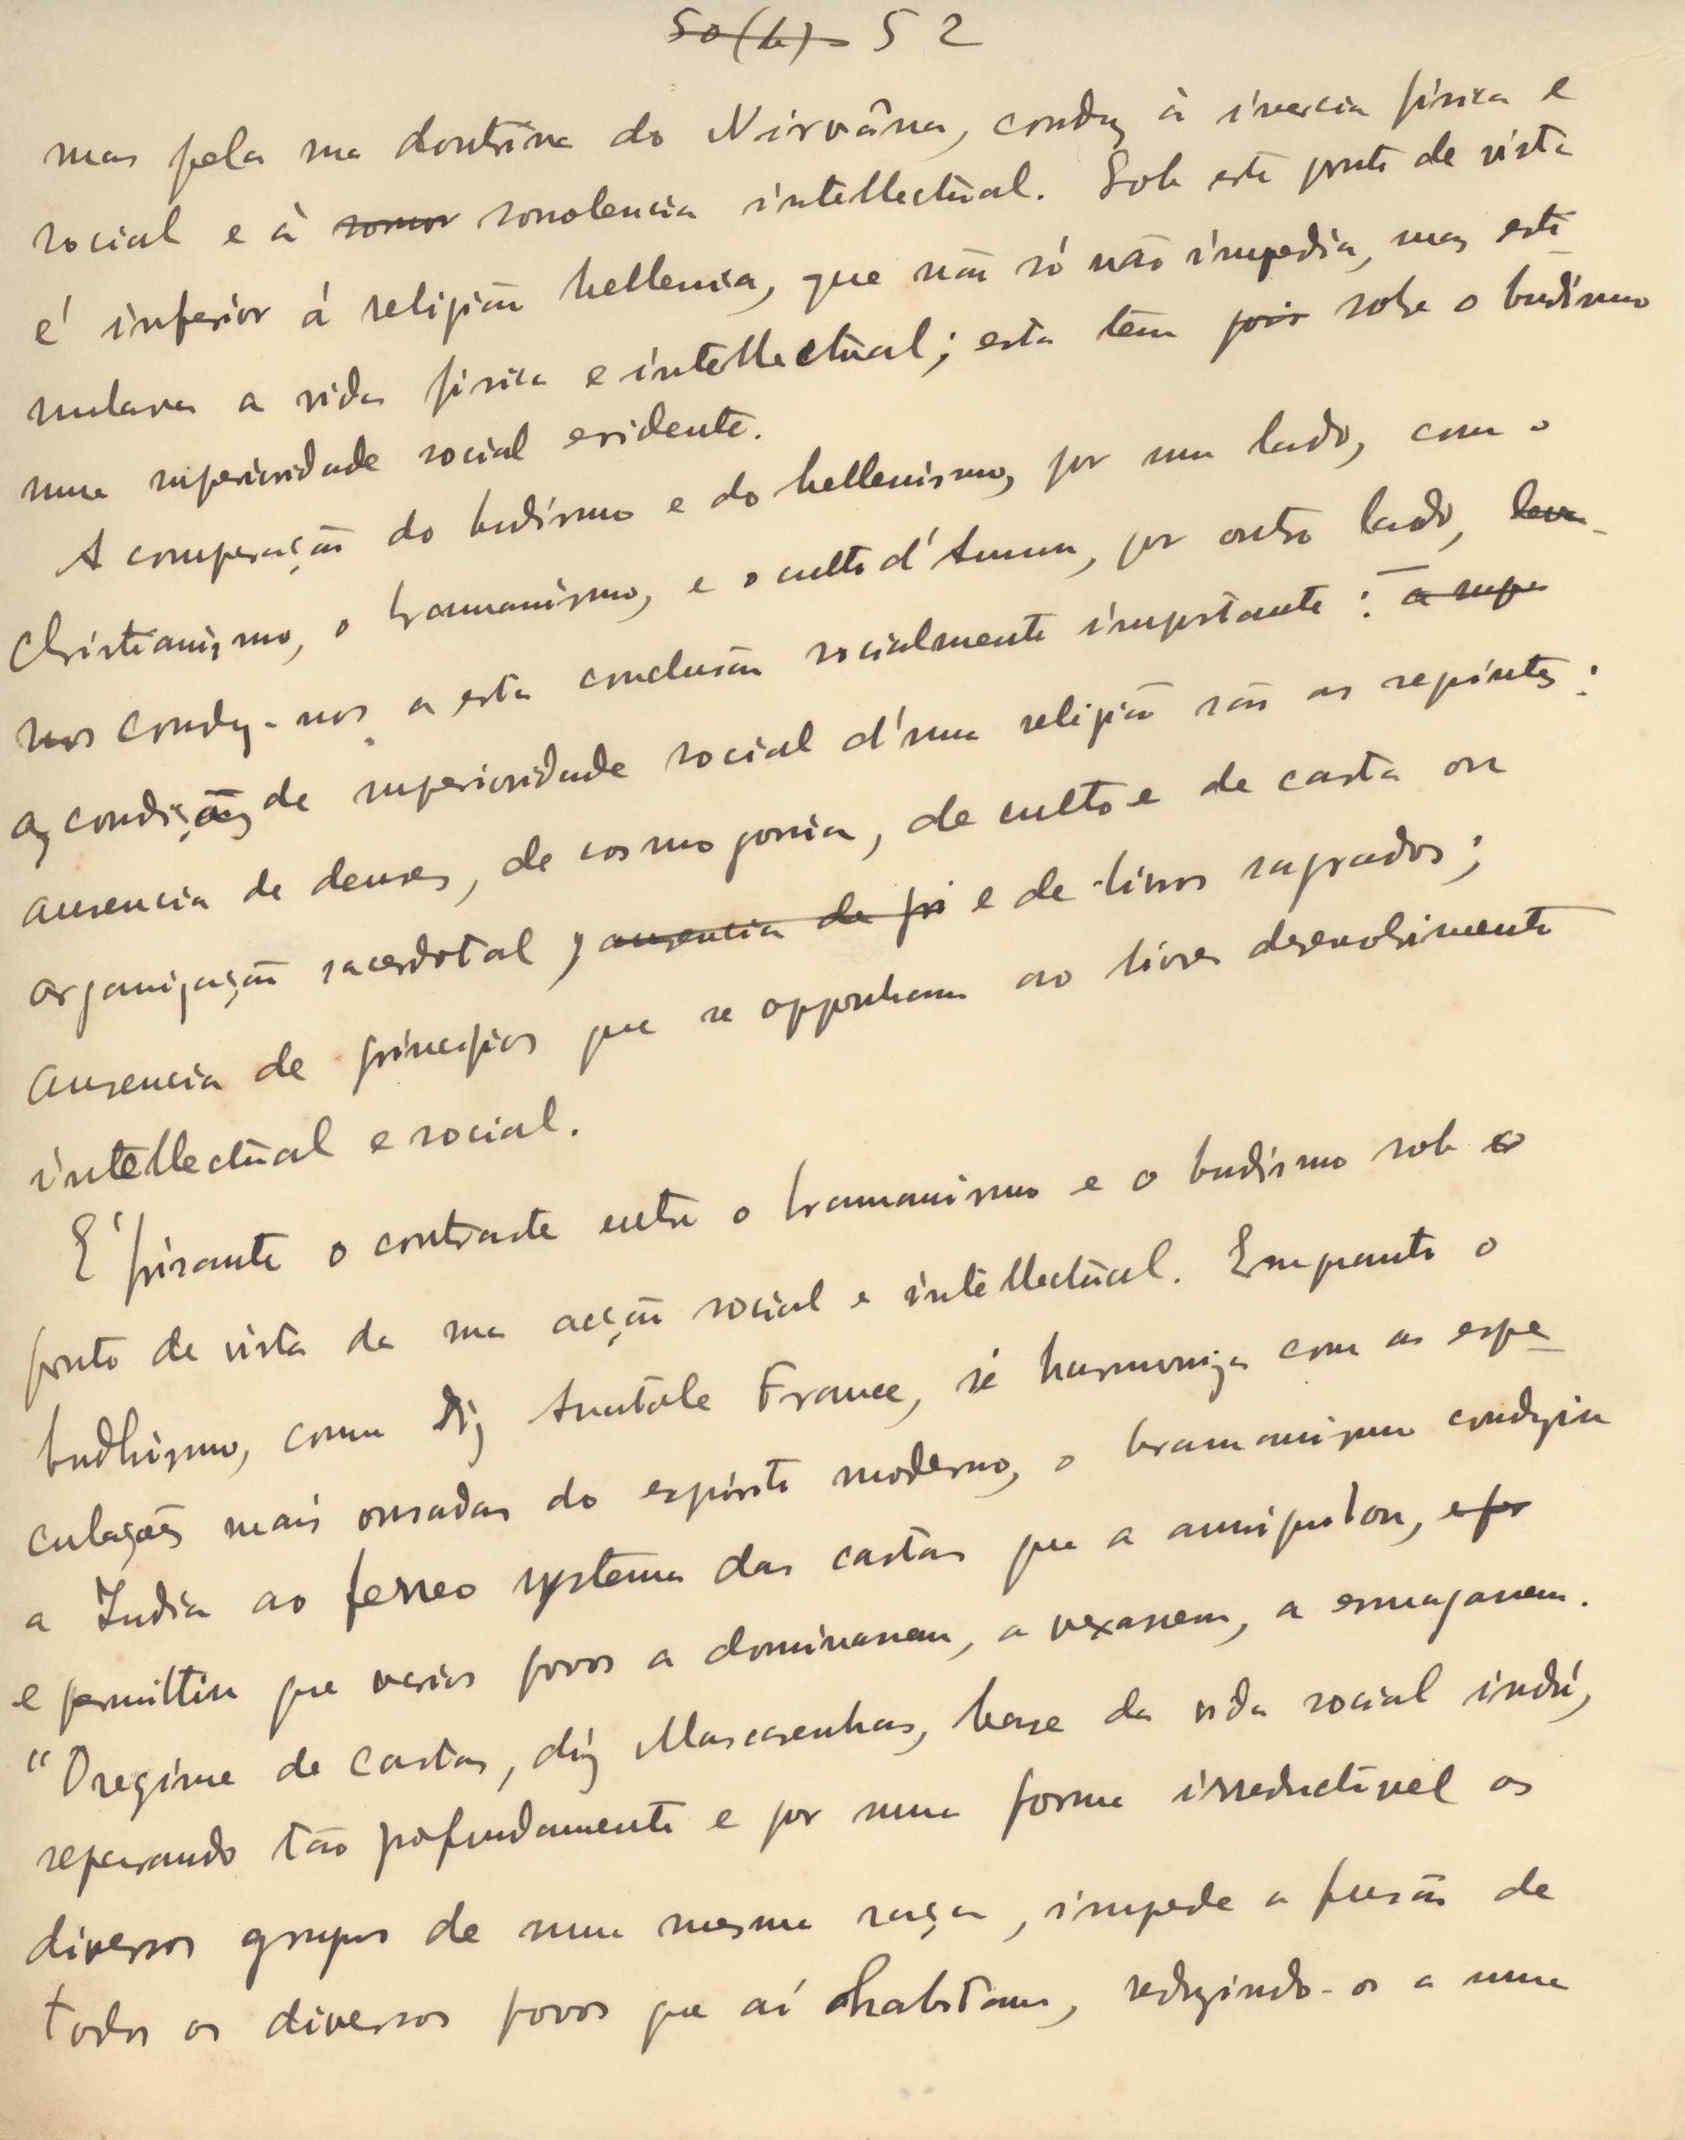 50(b) 52
mas pela sua doutrina do Nirvâna, conduz à inercia física e
social e à somor sonolencia intellectual. Sob este ponto de vista
é inferior á religião hellenica, que não só não impedia, mas esti-
mulava a vida física e intellectual; esta tem pois sobre o budismo
uma superioridade social evidente.
A comparação do budismo e do hellenismo, por um lado, com o
Christianismo, o bramanismo, e o culto d'Ammon, por outro lado, leva-
nos conduz-nos a esta conclusão socialmente importante: – a supe
as condições de superioridade social d'uma religião são as seguintes:
ausencia de deuses, de cosmogonia, de culto e de casta ou
organização sacerdotal, ausencia de pri e de livros sagrados;
ausencia de principios que se opponham ao livre desenvolvimento
intellectual e social.
E' frisante o contraste entre o bramanismo e o budismo sob o
ponto de vista da sua acção social e intellectual. Emquanto o
budhismo, como diz Anatole France, se harmoniza com as espe-
culações mais ousadas do espirito moderno, o bramanismo conduziu
a India ao ferreo systema das castas que a anniquilou, e per
e permittiu que varios povos a dominassem, a vexassem, a esmagassem.
"O regime de castas, diz Mascarenhas, base da vida social indú,
separando tão profundamente e por uma forma irreductivel os
diversos grupos de uma mesma raça, impede a fusão de
todos os diversos povos que aí habitam, reduzindo-os a uma